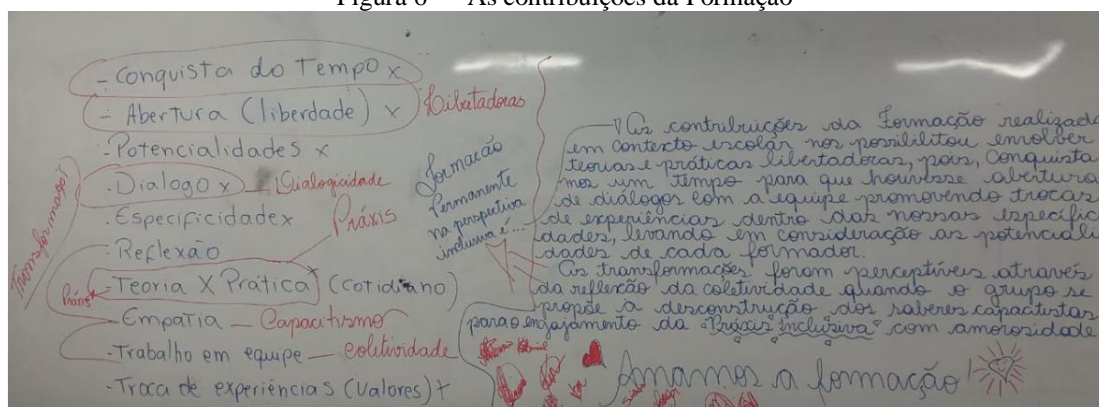 Figura 6 As contribuições da Formação
- Conquista do Tempo x
- Abertura (liberdade) x Libertadoras
- Potencialidades x
- Dialogo x - Dialogicidade
- Especificidade x
Práxis
- Reflexão
- Teoria X Prática x (cotidiano)
Práxis
- Empatia - Capacitismo
- Trabalho em equipe - coletividade
- Troca de experiências (Valores) +
Transformação
Formação
Permanente
na perspectiva
inclusiva é...
As contribuições da Formação realizada
em contexto escolar nos possibilitou envolver
teorias e práticas libertadoras, pois, conquista
mos um tempo para que houvesse abertura
de diálogos com a equipe promovendo trocas
de experiências dentro das nossas específic
dades, levando em consideração as potenciali
dades de cada formador.
As transformações foram perceptíveis através
da reflexão da coletividade quando o grupo se
propõe a desconstrução dos saberes capacitistas
para o engajamento da "Práxis Inclusiva" com amorosidade
Amamos a formação!